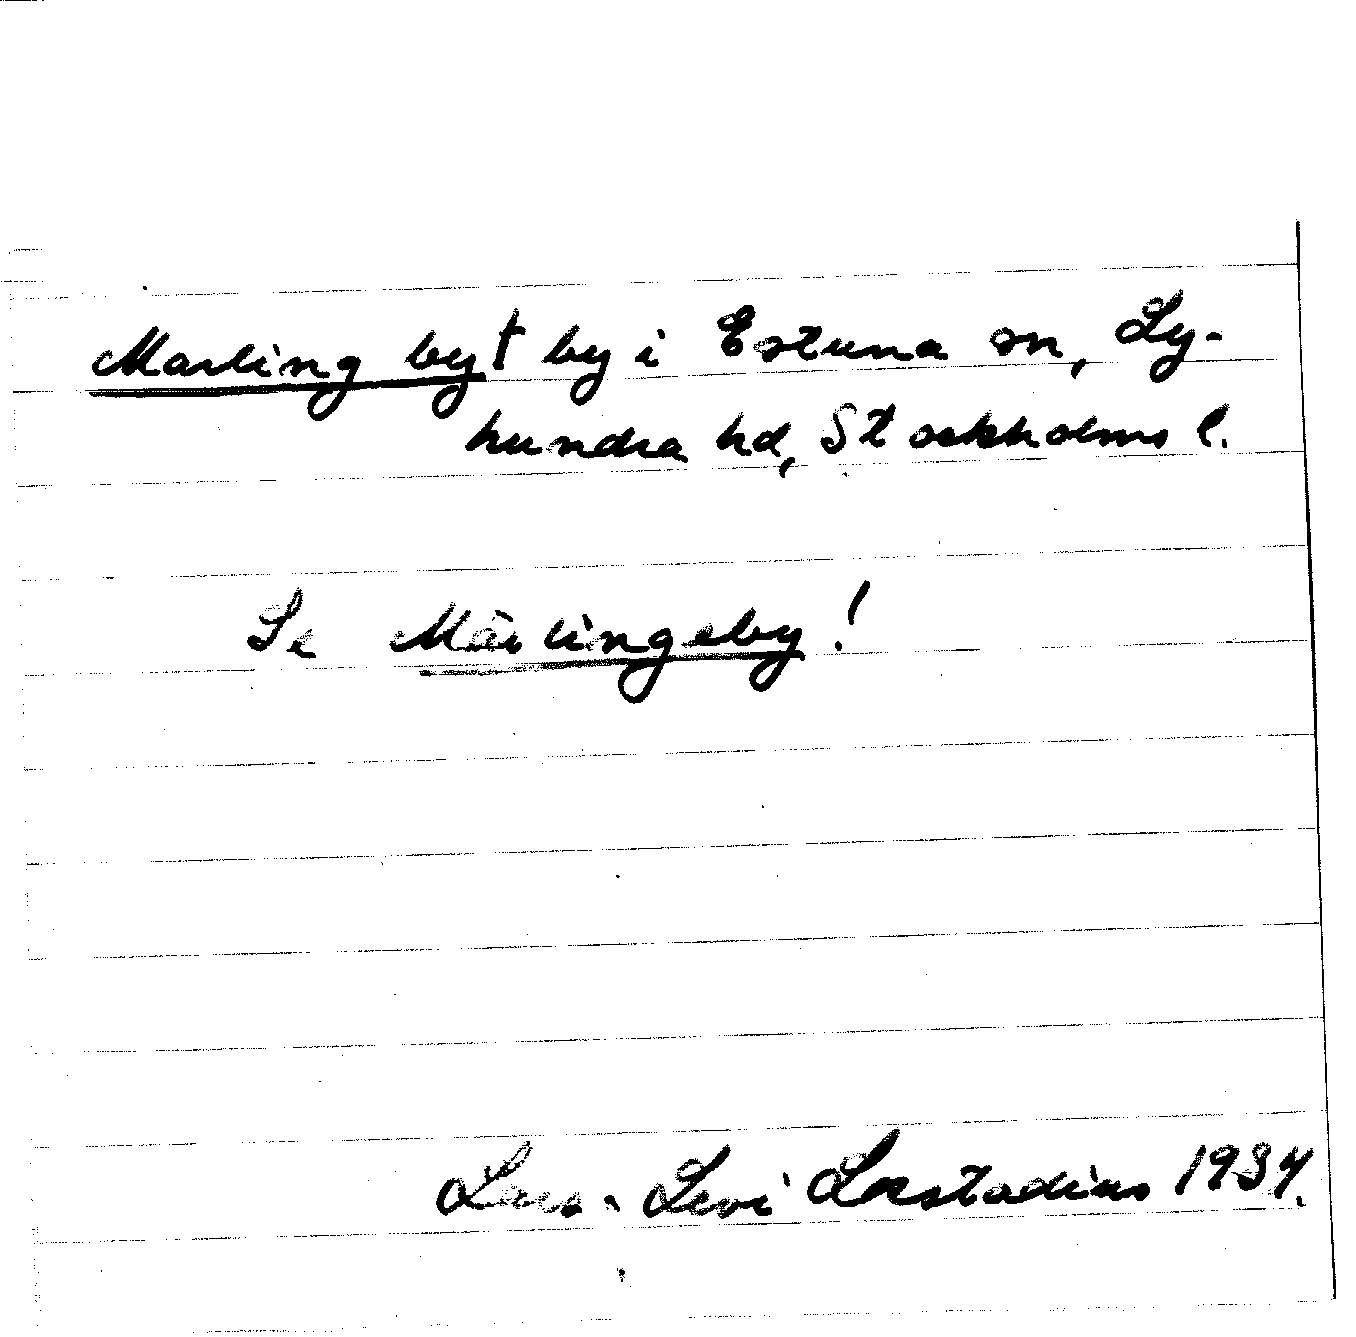 Marlingby † by i Estuna sn, Ly-
hundra hd, Stockholms l.
Se Märlingeby!
Lars-Levi Læstadius 1934.